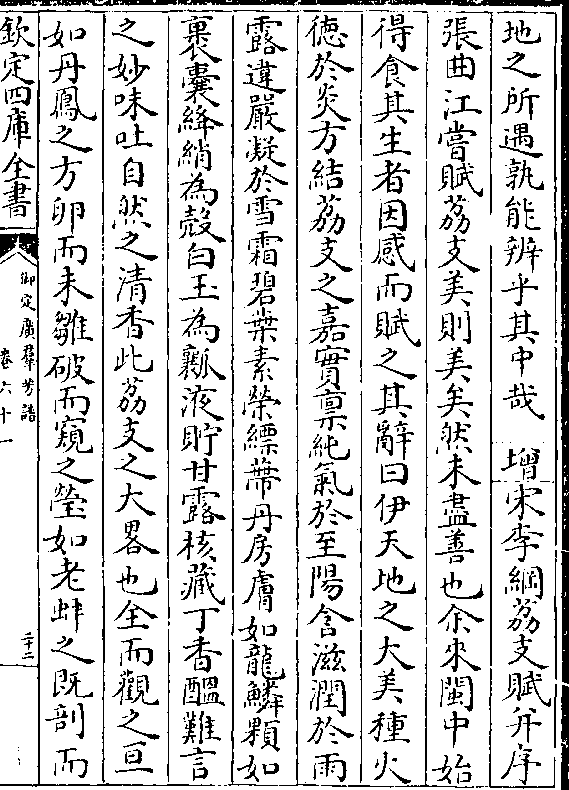 地之所遇孰能辨乎其中哉　增宋李綱荔支賦并序
張曲江嘗賦荔支美則美矣然未盡善也余來閩中始
得食其生者因感而賦之其辭曰伊天地之大美種火
德於炎方結荔支之嘉實稟純氣於至陽含滋潤於雨
露違嚴凝於雪霜碧葉素榮縹蔕丹房膚如龍鱗顆如
裹囊絳綃為殼白玉為瓤液貯甘露核藏丁香醞難言
之妙味吐自然之清香此荔支之大畧也全而觀之亘
如丹鳳之方卵而未雛破而窺之瑩如老蚌之既剖而
欽定四庫全書
御定廣羣芳譜
卷六十一
二十二